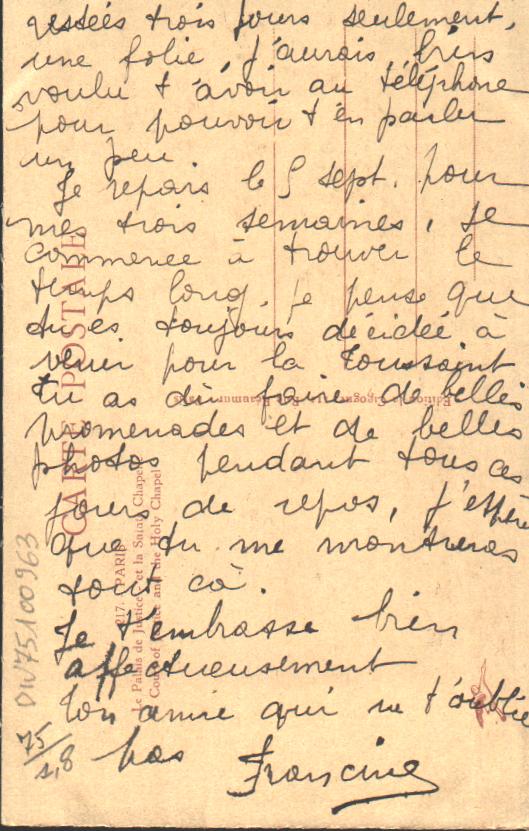 restées trois jours seulement,
une folie, j'aurais bien
voulu t'avoir au téléphone
pour pouvoir t'en parler
un peu.
Je repars le 5 sept. pour
mes trois semaines, je
commence à trouver le
temps long, je pense que
tu es toujours décidée à
venir pour la Toussaint
tu as dû faire de belles
promenades et de belles
photos pendant tous ces
jours de repos, j'espère
que tu me montreras
tout ça.
Je t'embrasse bien
affectueusement
ton amie qui ne t'oublie
pas
Francine
CARTE POSTALE
217. PARIS
Le Palais de Justice et la Sainte Chapelle
Court of Justice and the Holy Chapel
DIV75100963
75/1,8